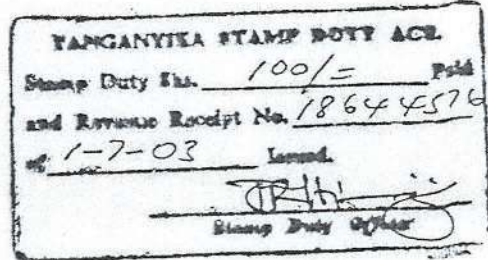 TANGANYIKA STAMP DUTY ACT.
Stamp Duty Shs. 100/= Paid
and Revenue Receipt No. 18644576
of 1-7-03 Issued.
Stamp Duty Officer